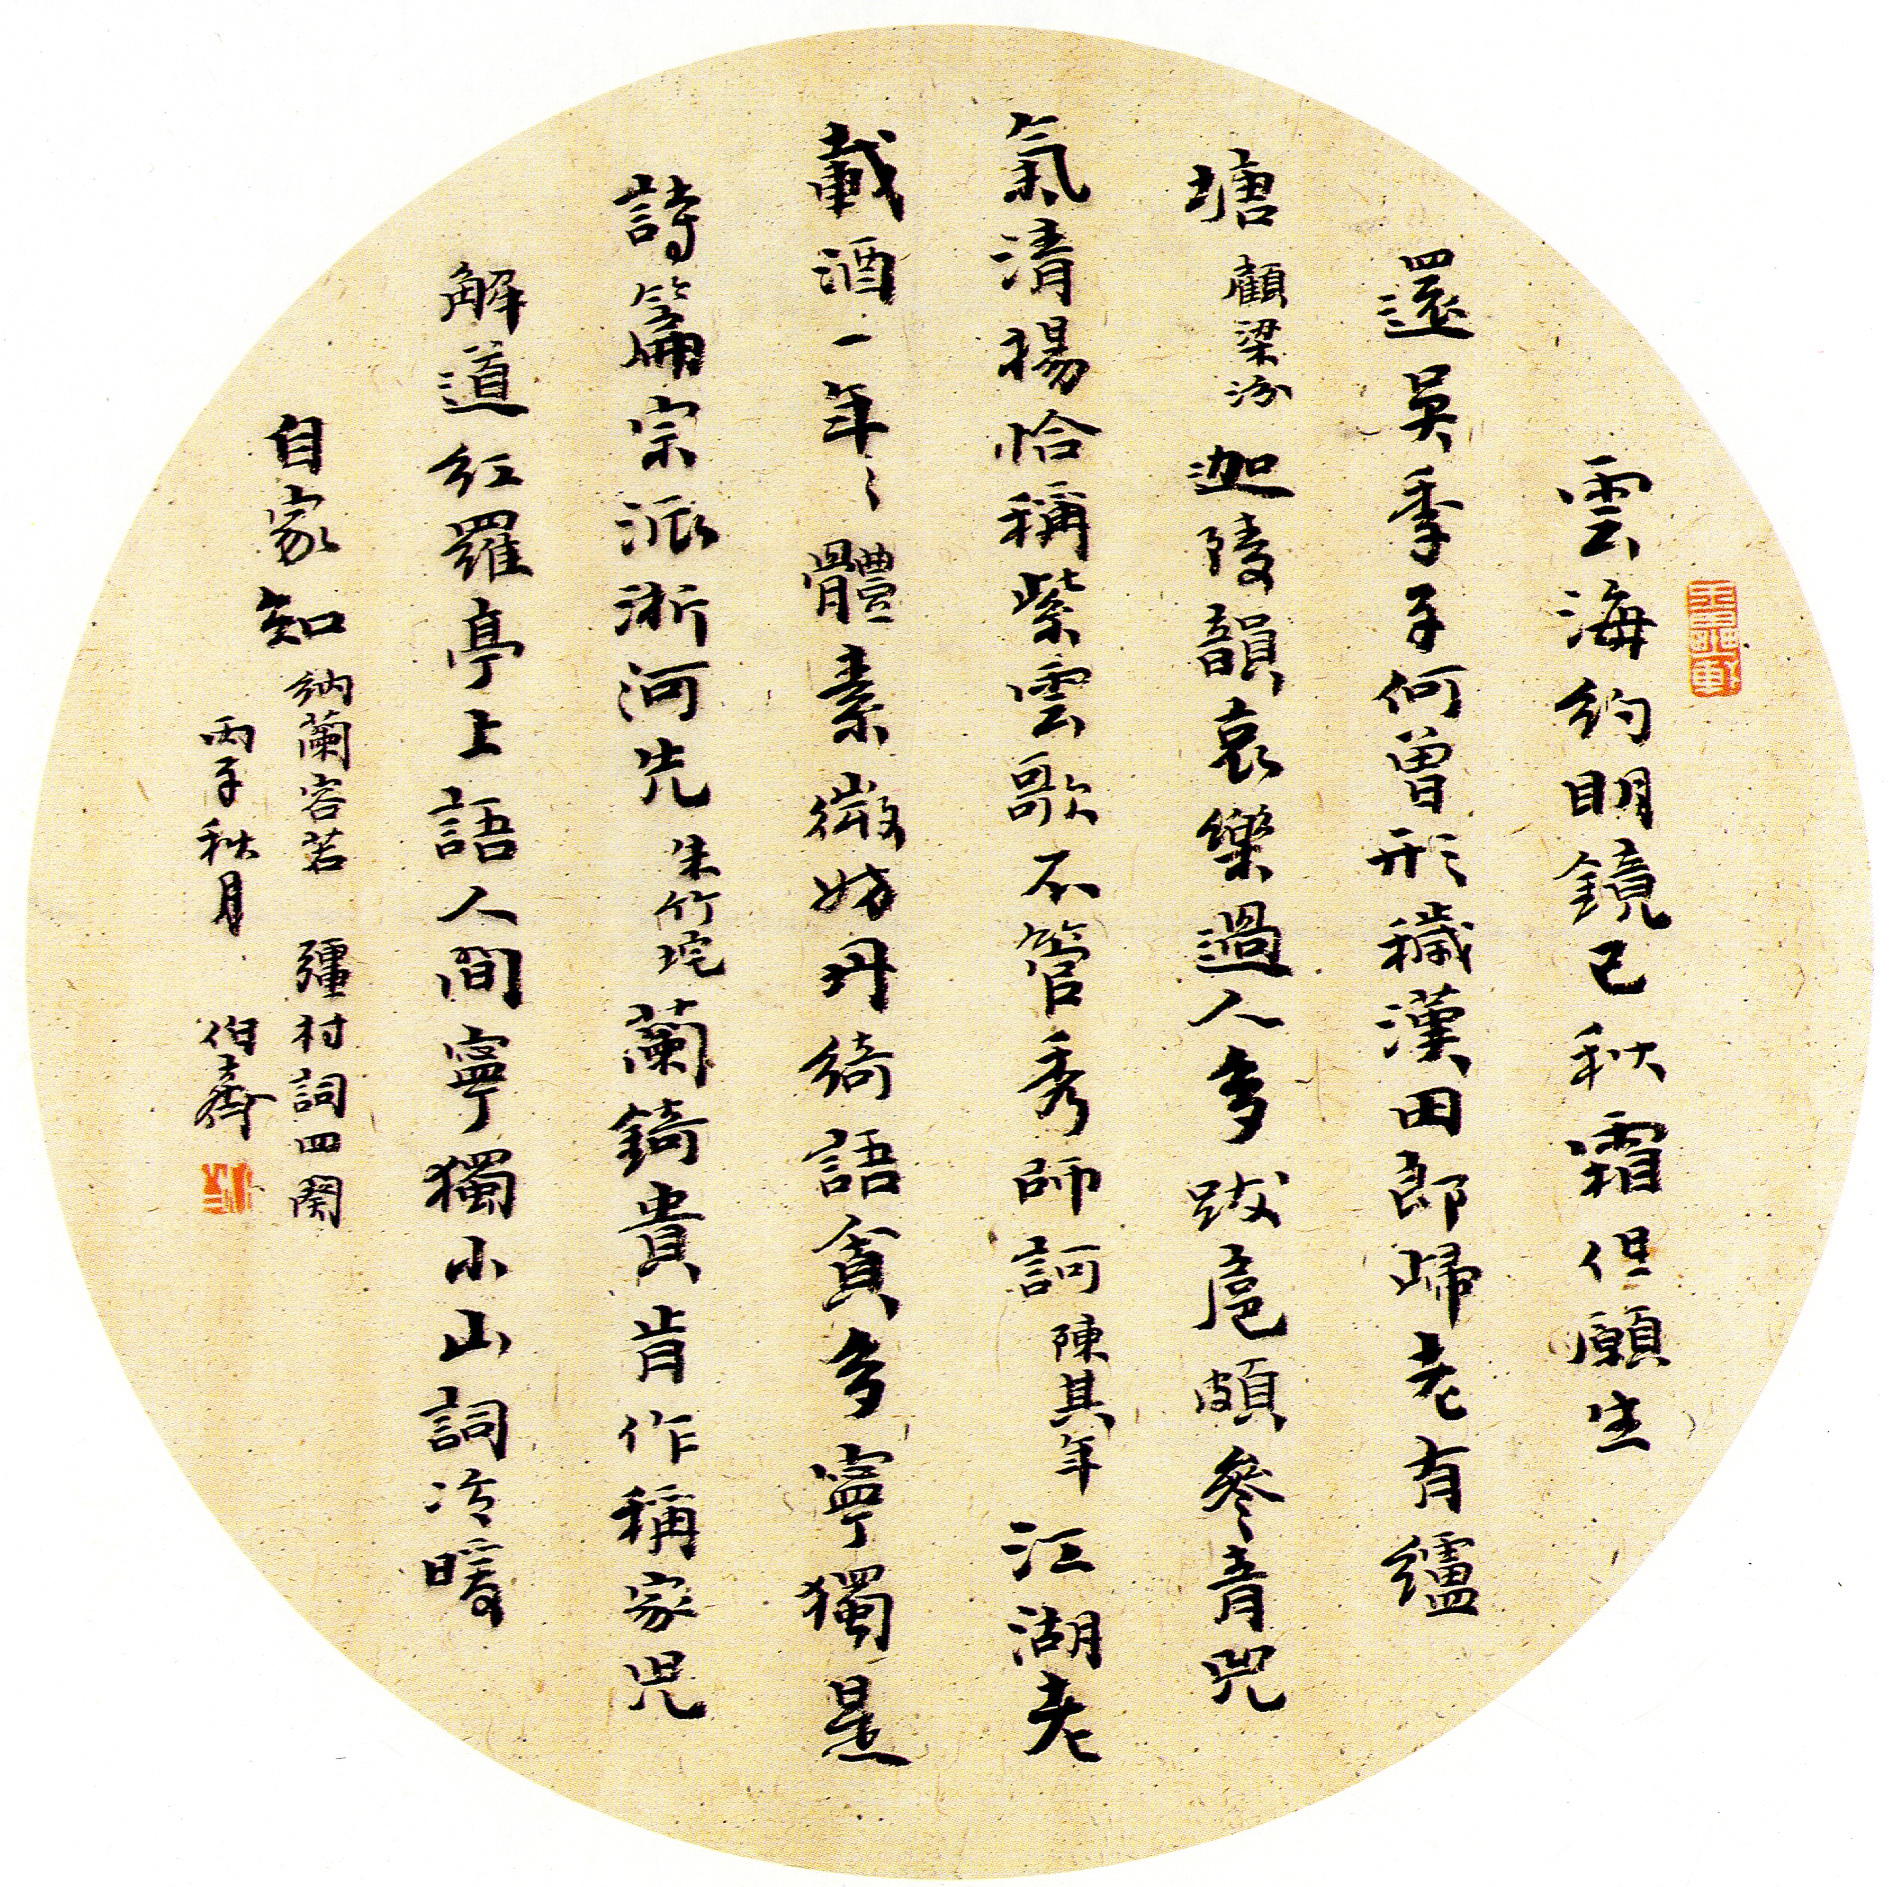 雲海約明鏡已秋霜但願生
還吳季子何曾形穢漢田郎歸老有纑
塘 顧梁汾 迦陵韻哀樂過人多跋扈頗參青兕
氣清揚恰稱紫雲歌不管秀師訶 陳其年 江湖老
載酒一年〻體素微妨丹綺語貪多寧獨是
詩篇宗派浙河先 朱竹垞 蘭錡貴肯作稱家兒
解道紅羅亭上語人間寧獨小山詞冷暖
自家知 納蘭容若 彊村詞四闋
丙子秋月 伯